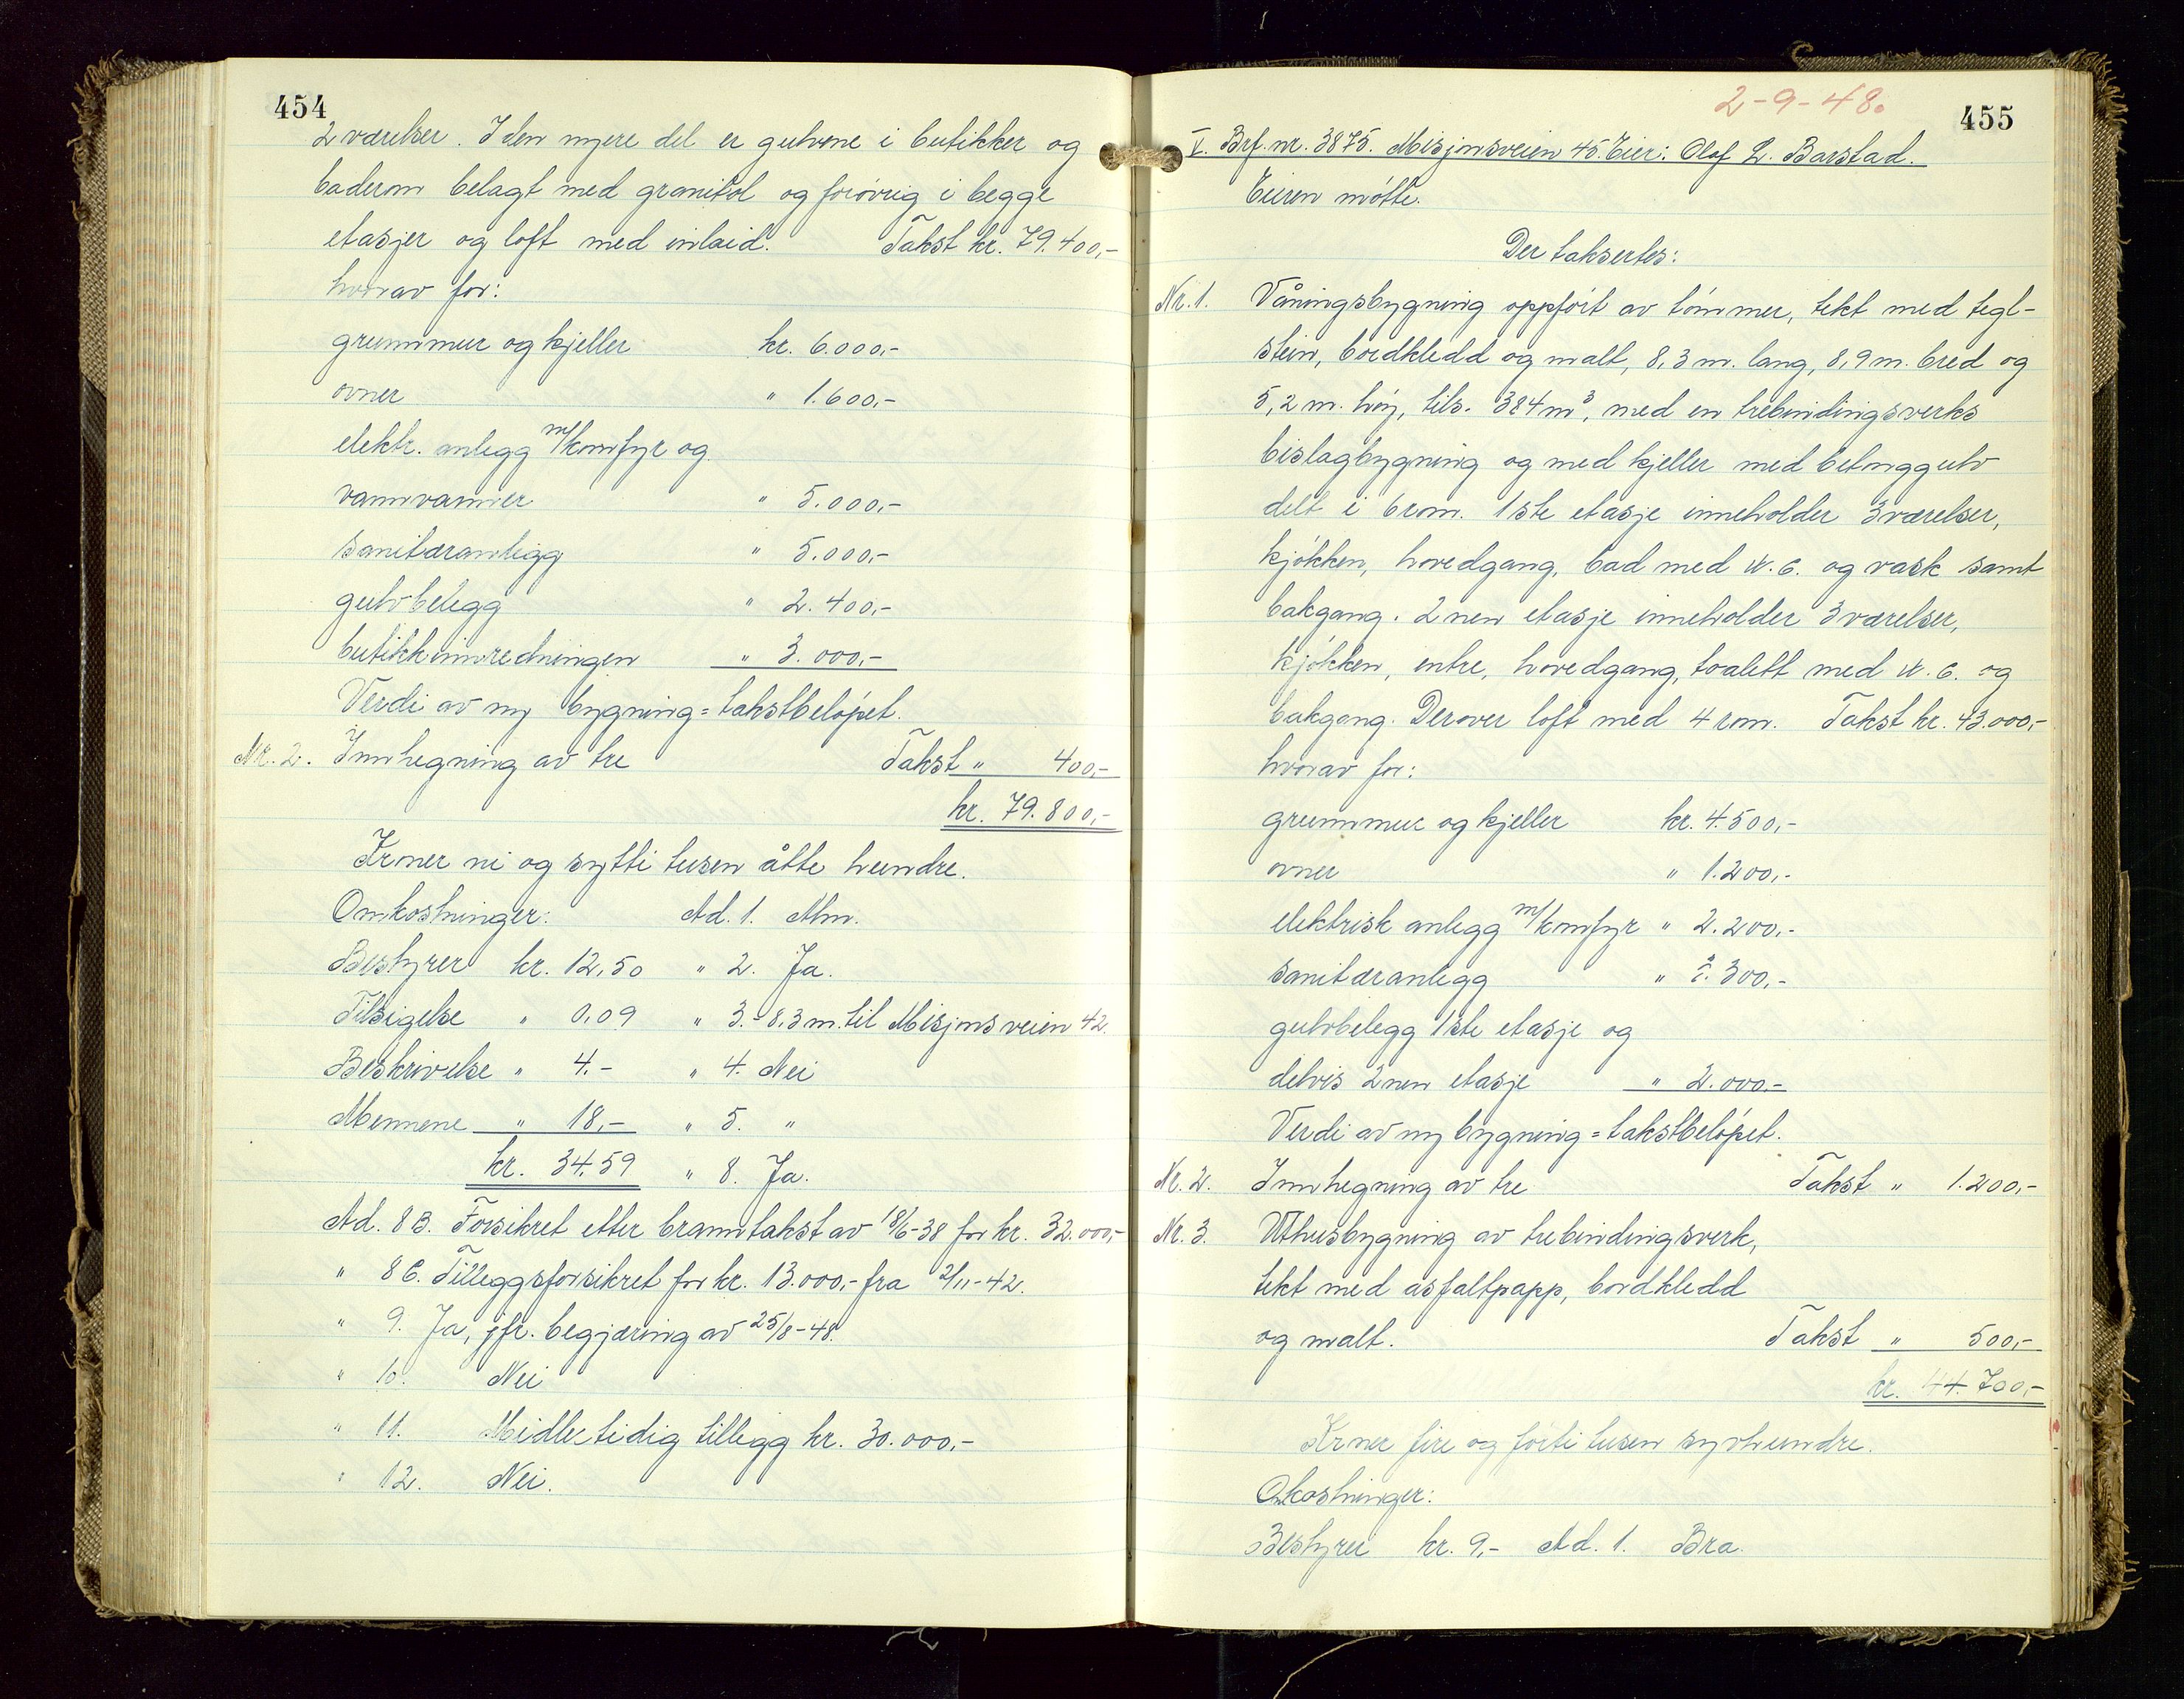 454
2 værelser. I den nyere del er gulvene i butikker og
baderom belagt med granitol og forøvrig i begge
etasjer og loft med inlaid. Takst kr. 79.400,-
hvorav for:
grunnmur og kjeller kr. 6.000,-
ovner " 1.600,-
elektr. anlegg m/komfyr og
vannvarmer " 5.000,-
sanitæranlegg " 5.000,-
gulvbelegg " 2.400,-
butikkinnredningen " 3.000,-
Verdi av ny bygning = takstbeløpet.
Nr. 2. Innhegning av tre Takst " 400,-
kr. 79.800,-
Kroner ni og sytti tusen åtte hundre.
Omkostninger: Ad. 1. Alm.
Bestyrer kr. 12,50 " 2. Ja.
Tilsigelse " 0,09 " 3. - 8,3 m. til Misjonsveien 42.
Beskrivelse " 4.- " 4. Nei
Mennene " 18,- " 5. "
kr. 34.59 " 8. Ja.
Ad. 8 B. Forsikret etter branntakst av 18/6-38 for kr. 32.000,-
" 8 C. Tilleggsforsikret for kr. 13.000,- fra 2/11-42.
" 9. Ja, jfr. begjæring av 25/8-48.
" 10. Nei
" 11. Midlertidig tillegg kr. 30.000,-
" 12. Nei.
2-9-48.
455
V. Brf. nr. 3875. Misjonsveien 45. Eier: Olaf L. Barstad.
Eieren møtte.
Der taksertes:
Nr. 1. Våningsbygning oppført av tømmer, tekt med tegl-
stein, bordkledd og malt, 8,3 m. lang, 8,9 m. bred og
5,2 m. høy, tils. 384 m³, med en trebindingsverks
bislagbygning og med kjeller med betonggulv
delt i 6 rom. 1ste etasje inneholder 3 værelser,
kjøkken, hovedgang, bad med W.C. og vask samt
bakgang. 2nen etasje inneholder 3 værelser,
kjøkken, entre, hovedgang, toalett med W.C. og
bakgang. Derover loft med 4 rom. Takst kr. 43.000,-
hvorav for:
grunnmur og kjeller kr. 4.500,-
ovner " 1.200,-
elektrisk anlegg m/komfyr " 2.200,-
sanitæranlegg " .300,-
gulvbelegg 1ste etasje og
delvis 2nen etasje " 2.000,-
Verdi av ny bygning = takstbeløpet.
Nr. 2. Innhegning av tre Takst " 1.200,-
Nr. 3. Uthusbygning av trebindingsverk,
tekt med asfaltpapp, bordkledd
og malt. Takst " 500,-
kr. 44.700,-
Kroner fire og førti tusen syvhundre.
Omkostninger:
Bestyrer kr. 9,- Ad. 1. Bra.